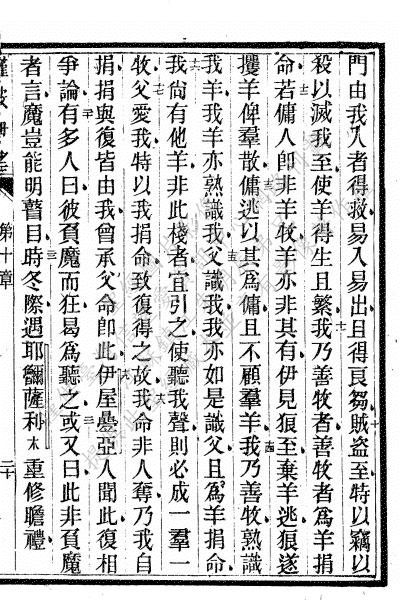 門由我入者得救易入易出且得良芻賊盜至特以竊以
殺以滅我至使羊得生且繁我乃善牧者善牧者為羊捐
命若傭人卽非羊牧羊亦非其有伊見狼至棄羊逃狼遂
攫羊俾羣散傭逃以其為傭且不顧羣羊我乃善牧熟識
我羊我羊亦熟識我父識我我亦如是識父且為羊捐命
我尙有他羊非此棧者宜引之使聽我聲則必成一羣一
牧父愛我特以我捐命致復得之故我命非人奪乃我自
捐捐與復皆由我曾承父命卽此伊屋疊亞人聞此復相
爭論有多人曰彼負魔而狂曷為聽之或又曰此非負魔
者言魔豈能明瞽目時冬際遇耶
薩利木重修瞻禮
第十章
二十